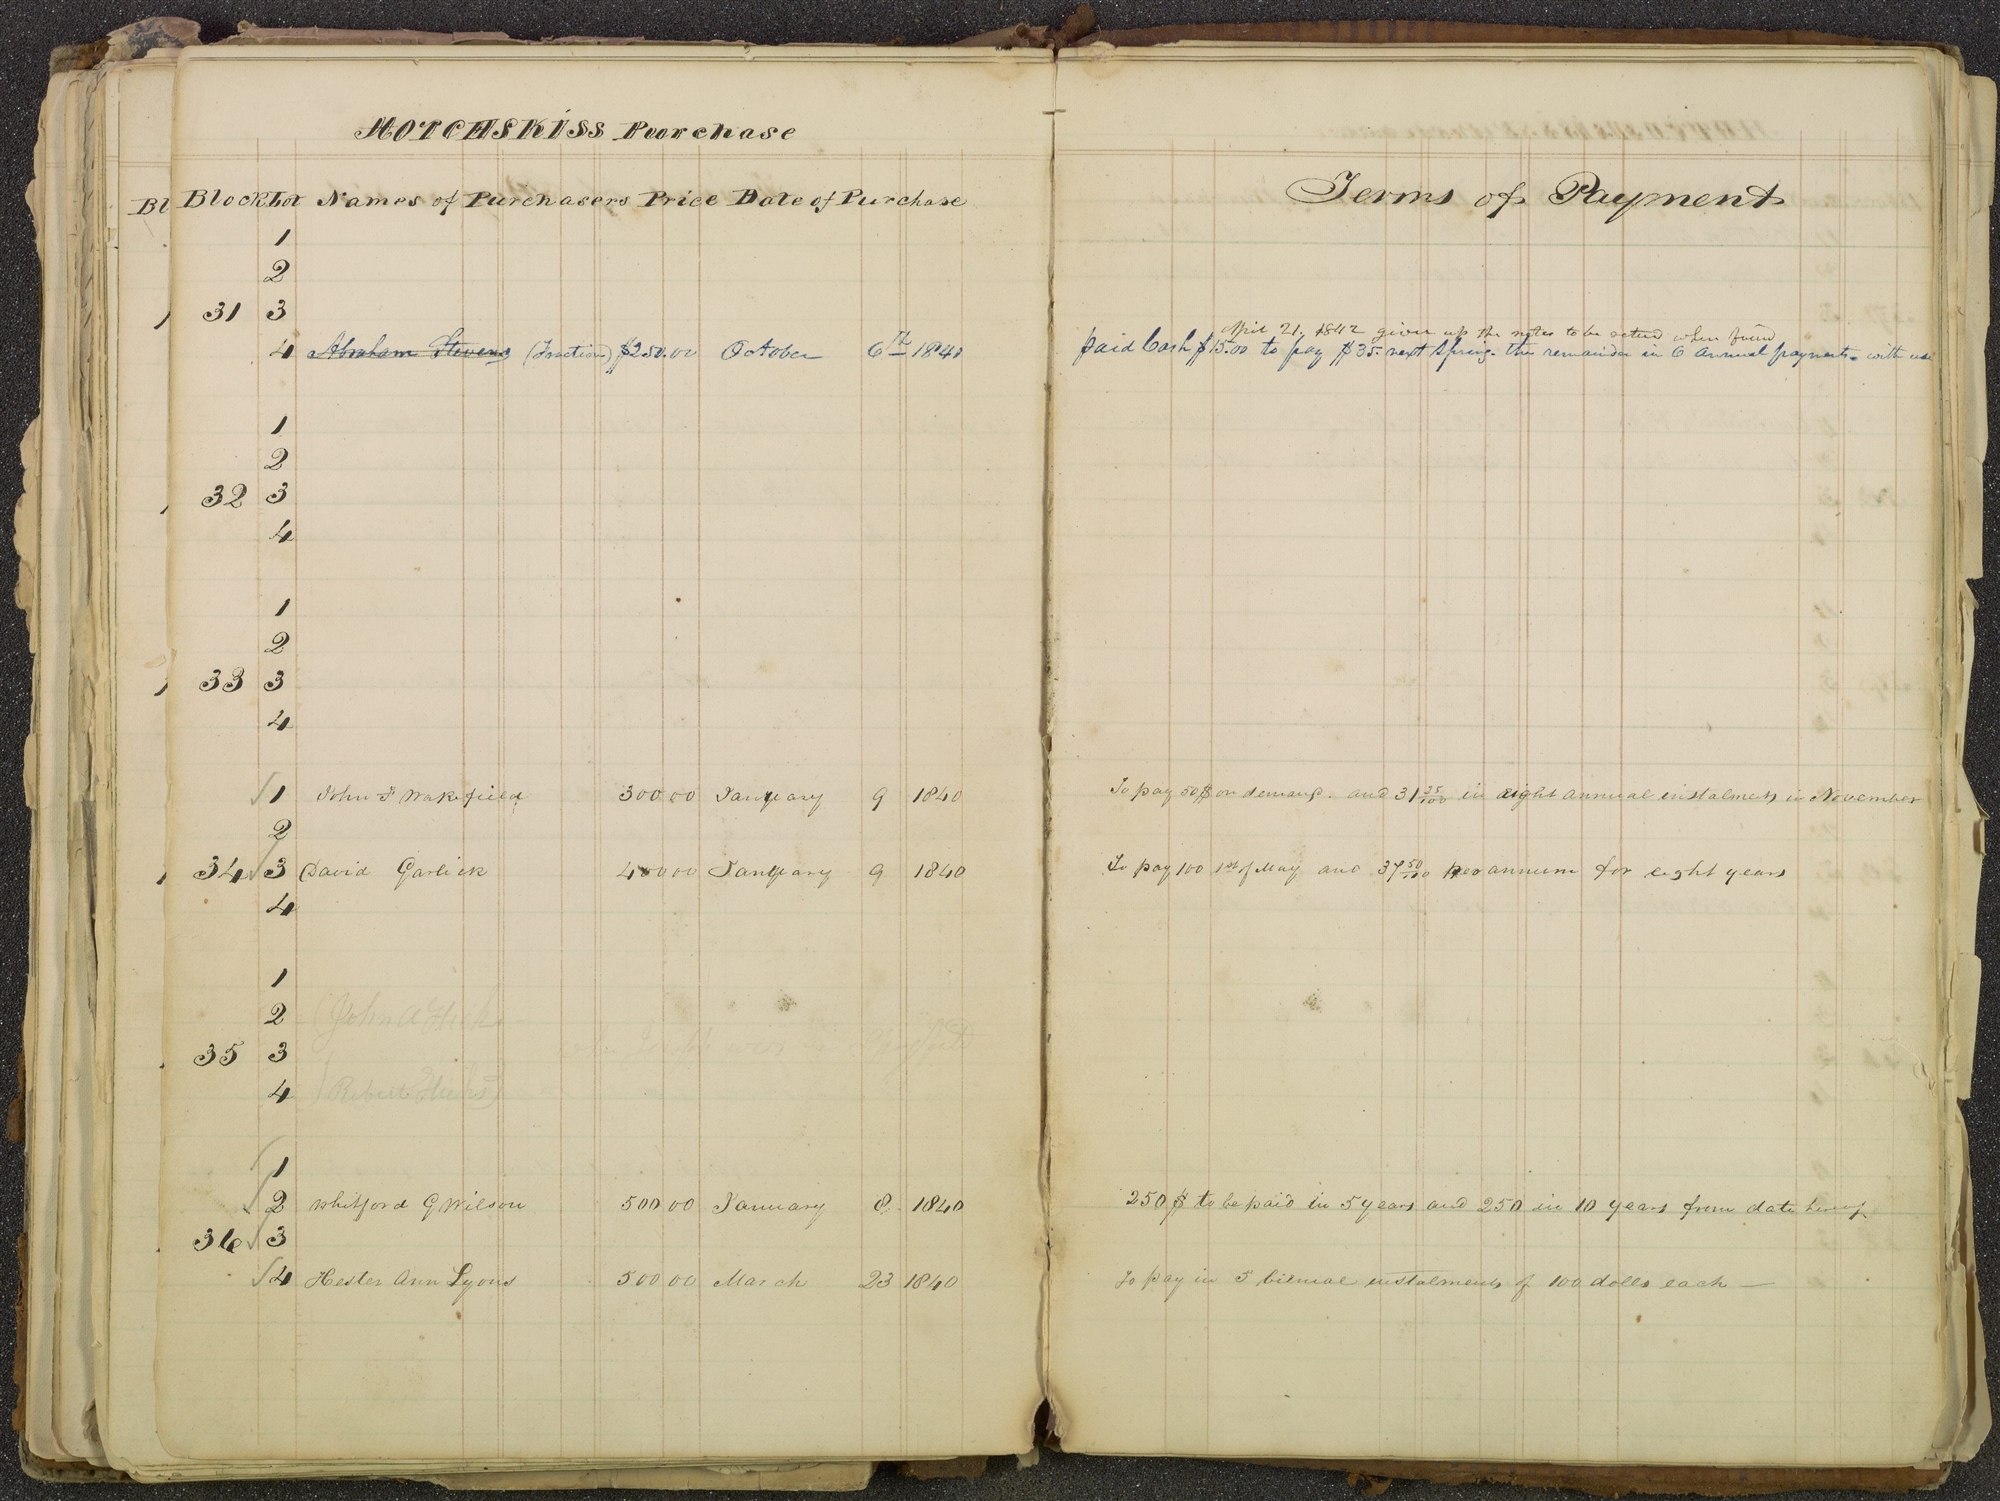 HOTCHSKISS Purchase
Bl Block Lot Names of Purchasers Price Date of Purchase Terms of Payment
1
2
31 3
April 21, 1842 given up the notes to be when found
4 Abraham Stevens (Fraction) $250.00 October 6th 1840 paid Cash $15.00 to pay $35. next Spring. the remainder in 6 annual payments. with use
1
2
32 3
4
1
2
33 3
4
1 John F Wakefield 300 00 January 9 1840 To pay 50$ on demand. and 31 25/100 in eight annual instalments in November
2
34 3 David Garlick 400 00 January 9 1840 To pay 100 1st of May and 37 50/100 per annum for eight years
4
1
2 (John A Hicks
35 3
4 Robert Hicks)
1
2 Whitford G Wilson 500 00 January 8 1840 250$ to be paid in 5 years and 250 in 10 years from date hereof
36 3
4 Hester Ann Lyons 500 00 March 23 1840 To pay in 5 bienial instalments of 100 dolls each —